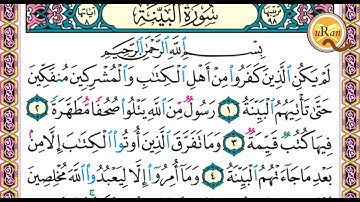 ترتيبها ٩٨
سُورَةُ الْبَيِّنَةِ
آياتها ٨
uRan
بِسْمِ اللَّهِ الرَّحْمَٰنِ الرَّحِيمِ
لَمْ يَكُنِ الَّذِينَ كَفَرُوا مِنْ أَهْلِ الْكِتَابِ وَالْمُشْرِكِينَ مُنْفَكِّينَ
حَتَّى تَأْتِيَهُمُ الْبَيِّنَةُ ١ رَسُولٌ مِنَ اللَّهِ يَتْلُو صُحُفًا مُطَهَّرَةً ٢
فِيهَا كُتُبٌ قَيِّمَةٌ ٣ وَمَا تَفَرَّقَ الَّذِينَ أُوتُوا الْكِتَابَ إِلَّا مِنْ
بَعْدِ مَا جَاءَتْهُمُ الْبَيِّنَةُ ٤ وَمَا أُمِرُوا إِلَّا لِيَعْبُدُوا اللَّهَ مُخْلِصِينَ